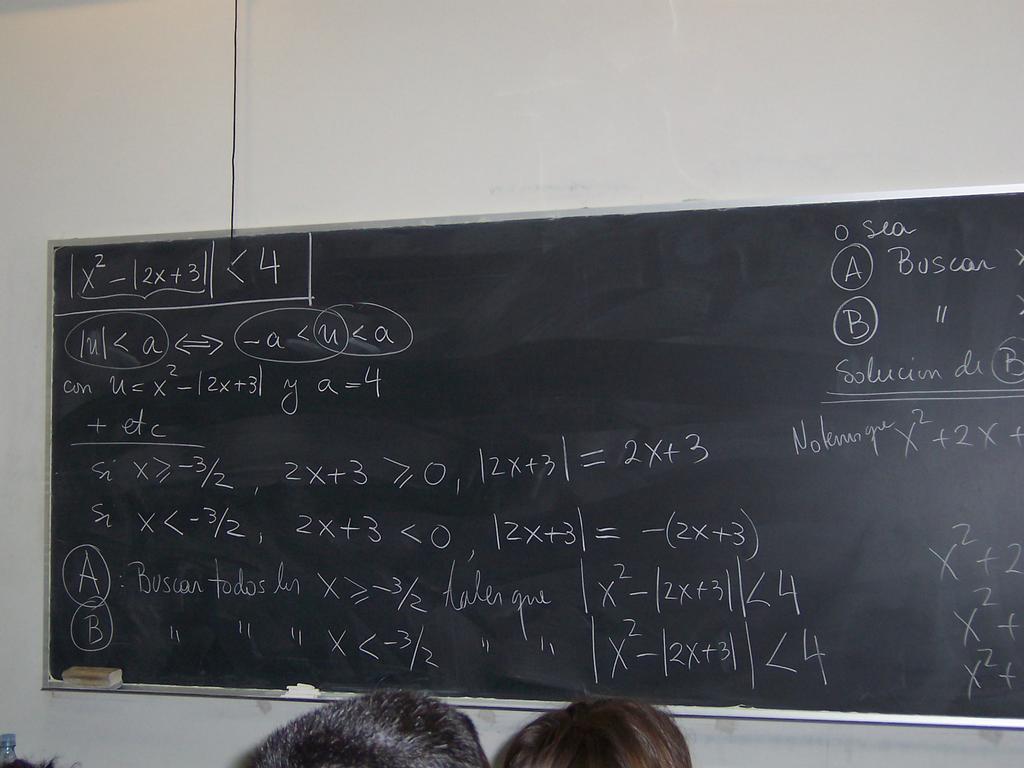 |x² - |2x+3|| < 4
|u| < a ⟺ -a < u < a
con u = x² - |2x+3| y a = 4
+ etc
Si x ≥ -3/2, 2x+3 ≥ 0, |2x+3| = 2x+3
Si x < -3/2, 2x+3 < 0, |2x+3| = -(2x+3)
A : Buscar todos los x ≥ -3/2 tales que |x² - |2x+3|| < 4
B " " " x < -3/2 " " |x² - |2x+3|| < 4
o sea
A Buscar x
B " x
Solución de B
Notemos que x² + 2x +
x² + 2
x² +
x² +